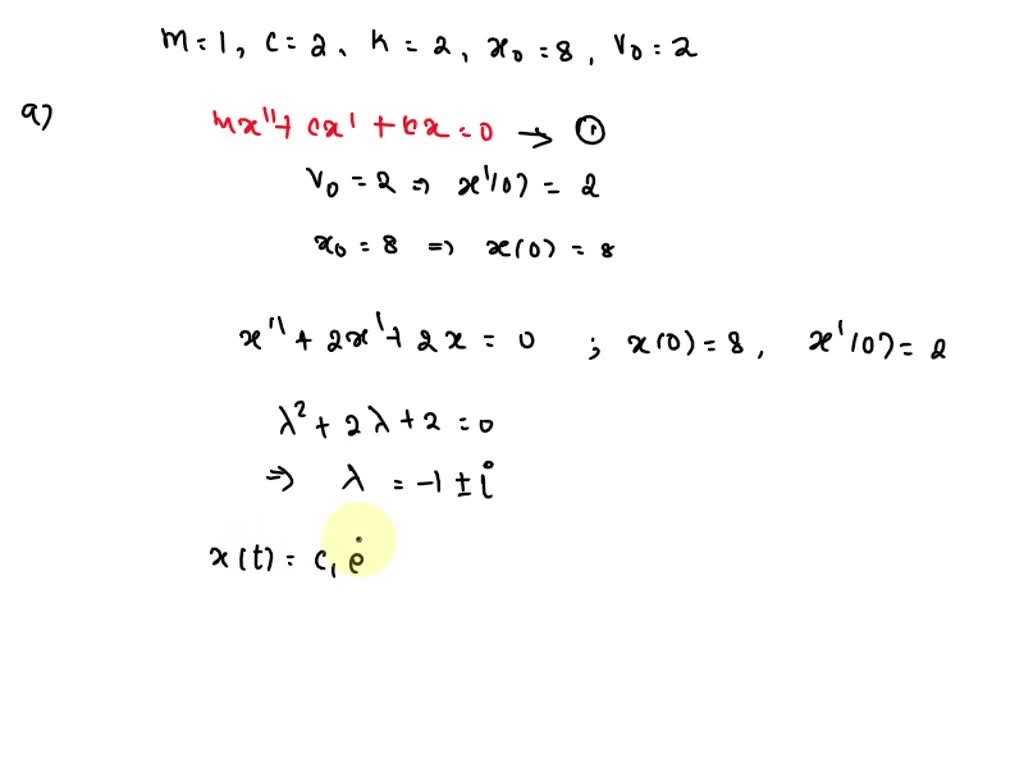 m=1, c=2, k=2, x₀=8, v₀=2
a) mx''+cx'+kx=0 → ①
v₀=2 ⇒ x'(0)=2
x₀=8 ⇒ x(0)=8
x''+2x'+2x=0 ; x(0)=8, x'(0)=2
λ²+2λ+2=0
⇒ λ=-1±i
x(t)=c₁e